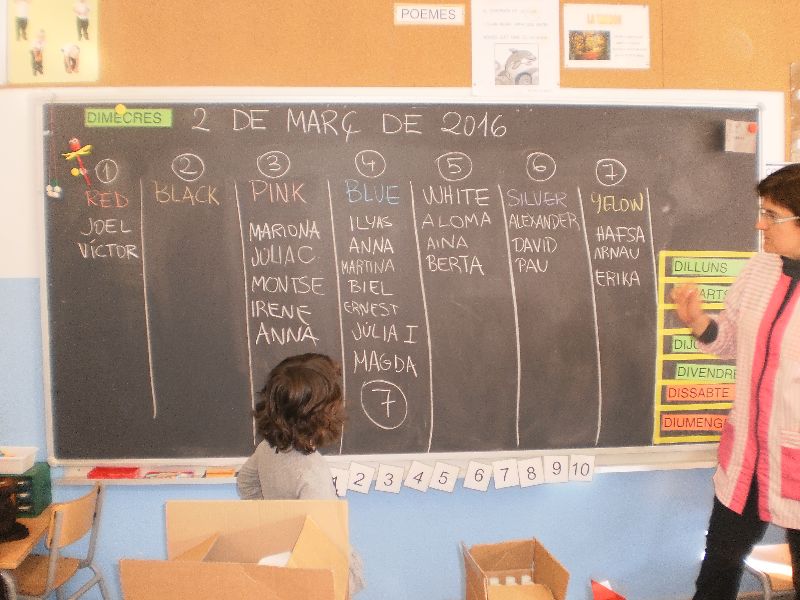 POEMES
LA TARDOR
DIMECRES 2 DE MARÇ DE 2016
1 2 3 4 5 6 7
RED BLACK PINK BLUE WHITE SILVER YELOW
JOEL
VÍCTOR
MARIONA
JULIA C
MONTSE
IRENE
ANNA
ILYAS
ANNA
MARTINA
BIEL
ERNEST
JÚLIA I
MAGDA
7
ALOMA
AINA
BERTA
ALEXANDER
DAVID
PAU
HAFSA
ARNAU
ERIKA
DILLUNS
DIVENDRE
DISSABTE
DIUMENG
1 2 3 4 5 6 7 8 9 10